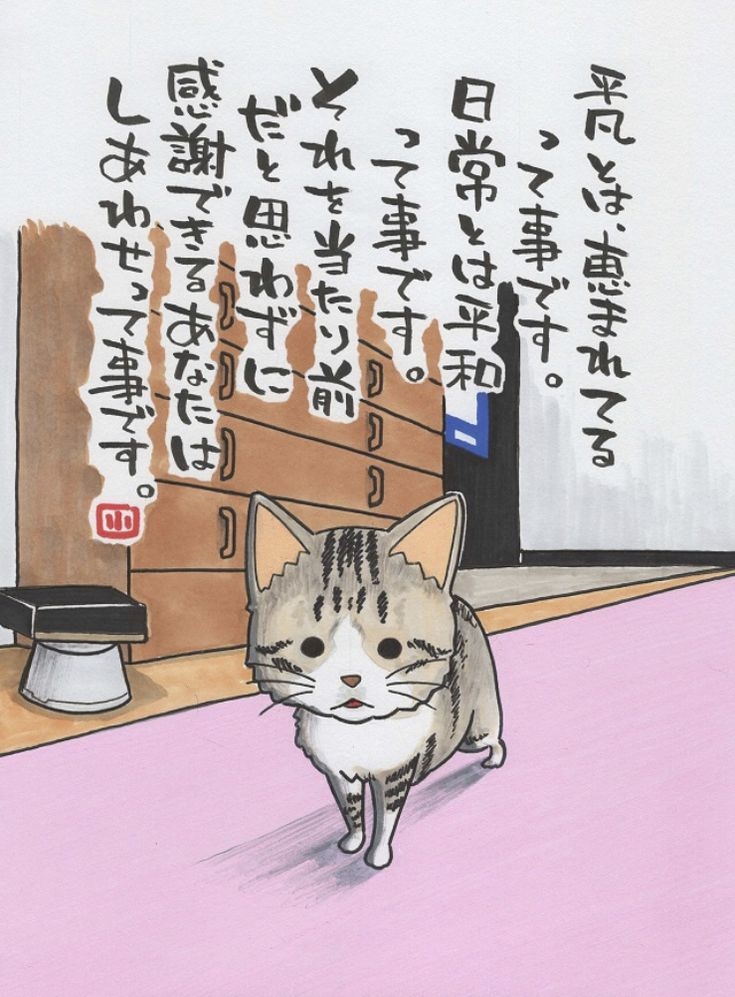 平凡とは、恵まれてる
って事です。
日常とは平和
って事です。
それを当たり前
だと思わずに
感謝できるあなたは
しあわせって事です。